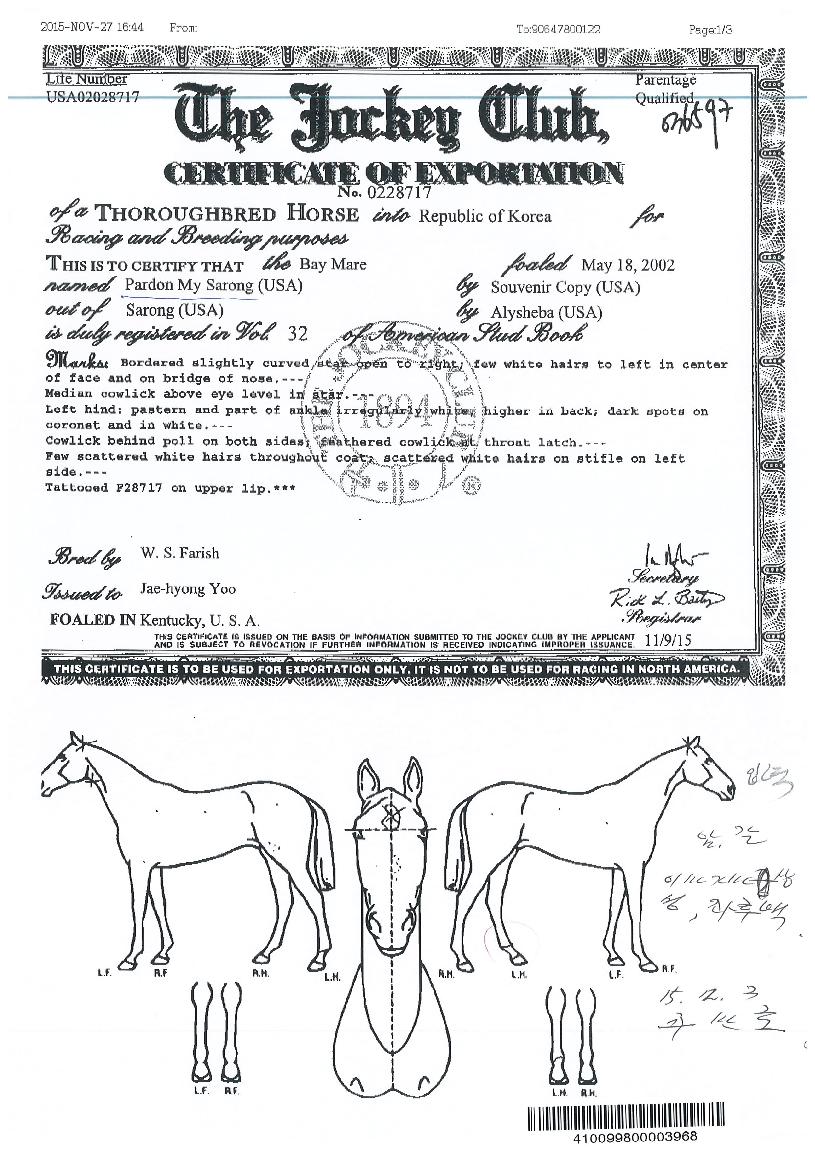 2015-NOV-27 16:44 From: To:90647800122 Page:1/3
Life Number
USA02028717
Parentage
Qualified
036597
The Jockey Club,
CERTIFICATE OF EXPORTATION
No. 0228717
of a THOROUGHBRED HORSE into Republic of Korea for
Racing and Breeding purposes
THIS IS TO CERTIFY THAT the Bay Mare foaled May 18, 2002
named Pardon My Sarong (USA) by Souvenir Copy (USA)
out of Sarong (USA) by Alysheba (USA)
is duly registered in Vol. 32 of American Stud Book
Marks: Bordered slightly curved star open to right; few white hairs to left in center
of face and on bridge of nose.---
Median cowlick above eye level in star.---
Left hind: pastern and part of ankle irregularly white, higher in back; dark spots on
coronet and in white.---
Cowlick behind poll on both sides; feathered cowlick at throat latch.---
Few scattered white hairs throughout coat; scattered white hairs on stifle on left
side.---
Tattooed F28717 on upper lip.***
THE JOCKEY CLUB
1894
®
Bred by W. S. Farish
Issued to Jae-hyong Yoo
Secretary
Rick L. Bailey
Registrar
FOALED IN Kentucky, U. S. A.
THIS CERTIFICATE IS ISSUED ON THE BASIS OF INFORMATION SUBMITTED TO THE JOCKEY CLUB BY THE APPLICANT
AND IS SUBJECT TO REVOCATION IF FURTHER INFORMATION IS RECEIVED INDICATING IMPROPER ISSUANCE. 11/9/15
THIS CERTIFICATE IS TO BE USED FOR EXPORTATION ONLY, IT IS NOT TO BE USED FOR RACING IN NORTH AMERICA.
L.F. R.F. R.H. L.H. R.H. L.H. L.F. R.F.
15. 12. 3
L.F. R.F. L.H. R.H.
410099800003968